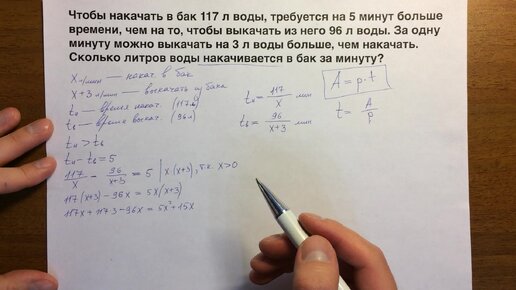 Чтобы накачать в бак 117 л воды, требуется на 5 минут больше
времени, чем на то, чтобы выкачать из него 96 л воды. За одну
минуту можно выкачать на 3 л воды больше, чем накачать.
Сколько литров воды накачивается в бак за минуту?
x л/мин — накач. в бак
x+3 л/мин — выкачать из бака
tн — время накач. (117 л)
tв — время выкач. (96 л)
tн > tв
tн - tв = 5
117/x - 96/x+3 = 5 | x·(x+3), т.к. x>0
117(x+3) - 96x = 5x(x+3)
117x + 117·3 - 96x = 5x² + 15x
tн = 117/x мин
tв = 96/x+3 мин
A = p·t
t = A/p